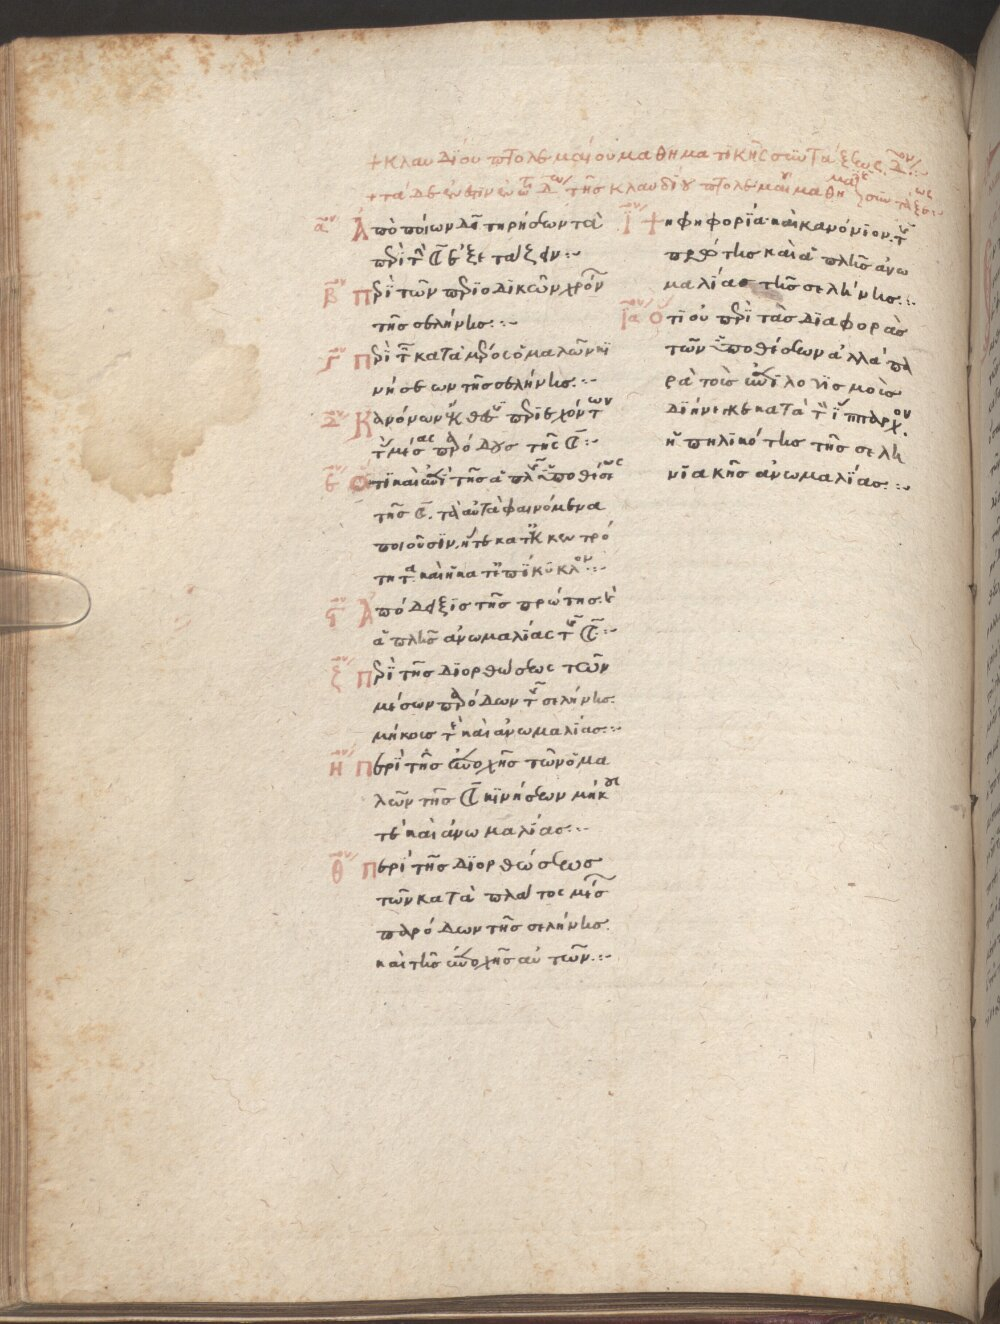 + κλαυδίου πτολεμαίου μαθηματικῆς συντάξεως δ̅ον :·
+ τάδε ἔνεστιν ἐν τῶ δ̅ω τῆς κλαυδίου πτολεμαίου μαθηματικῆς συντάξεως :·
α̅ον Ἀπὸ ποίων δεῖ τηρήσεων τὰ
περὶ τὴν ☾ ἐξετάζειν :·
β̅ον Περὶ τῶν περιοδικῶν χρόν
τῆς σελήνης :·
γ̅ον Περὶ τῶν κατὰ μέρος ὁμαλῶν κι
νήσεων τῆς σελήνης :·
δ̅ον Κανόνων ἔκθεσις περιεχόντων
τὰς μέσας παρόδους τῆς ☾ :·
ε̅ον Ὅτι καὶ ἐπὶ τῆς ἁπλῆς ὑποθέσεως
τῆς ☾. τὰ αὐτὰ φαινόμενα
ποιοῦσιν, ἥτε κατ' ἐκκεντρό
τητα καὶ ἡ κατ' ἐπίκυκλον :·
ϛ̅ον Ἀπόδειξις τῆς πρώτης καὶ
ἁπλῆς ἀνωμαλίας τῆς ☾ :·
ζ̅ον Περὶ τῆς διορθώσεως τῶν
μέσων παρόδων τῆς σελήνης.
μήκους τὲ καὶ ἀνωμαλίας :·
η̅ον Περὶ τῆς ἐποχῆς τῶν ὁμα
λῶν τῆς ☾ κινήσεων μήκους
τὲ καὶ ἀνωμαλίας :·
θ̅ον Περὶ τῆς διορθώσεως
τῶν κατὰ πλάτος μέσων
παρόδων τῆς σελήνης.
καὶ τῆς ἐποχῆς αὐτῶν :·
ι̅ον Ψηφηφορία· καὶ κανόνιον. τῆς
πρώτης καὶ ἁπλῆς ἀνω
μαλίας τῆς σελήνης :·
ια̅ον Ὅτι οὐ περὶ τὰς διαφορὰς
τῶν ὑποθέσεων ἀλλὰ πα
ρὰ τοὺς ἐπιλογισμοὺς
διήνεγκε κατὰ τὸν ἵππαρχον.
ἡ πηλικότης τῆς σελη
νιακῆς ἀνωμαλίας :·